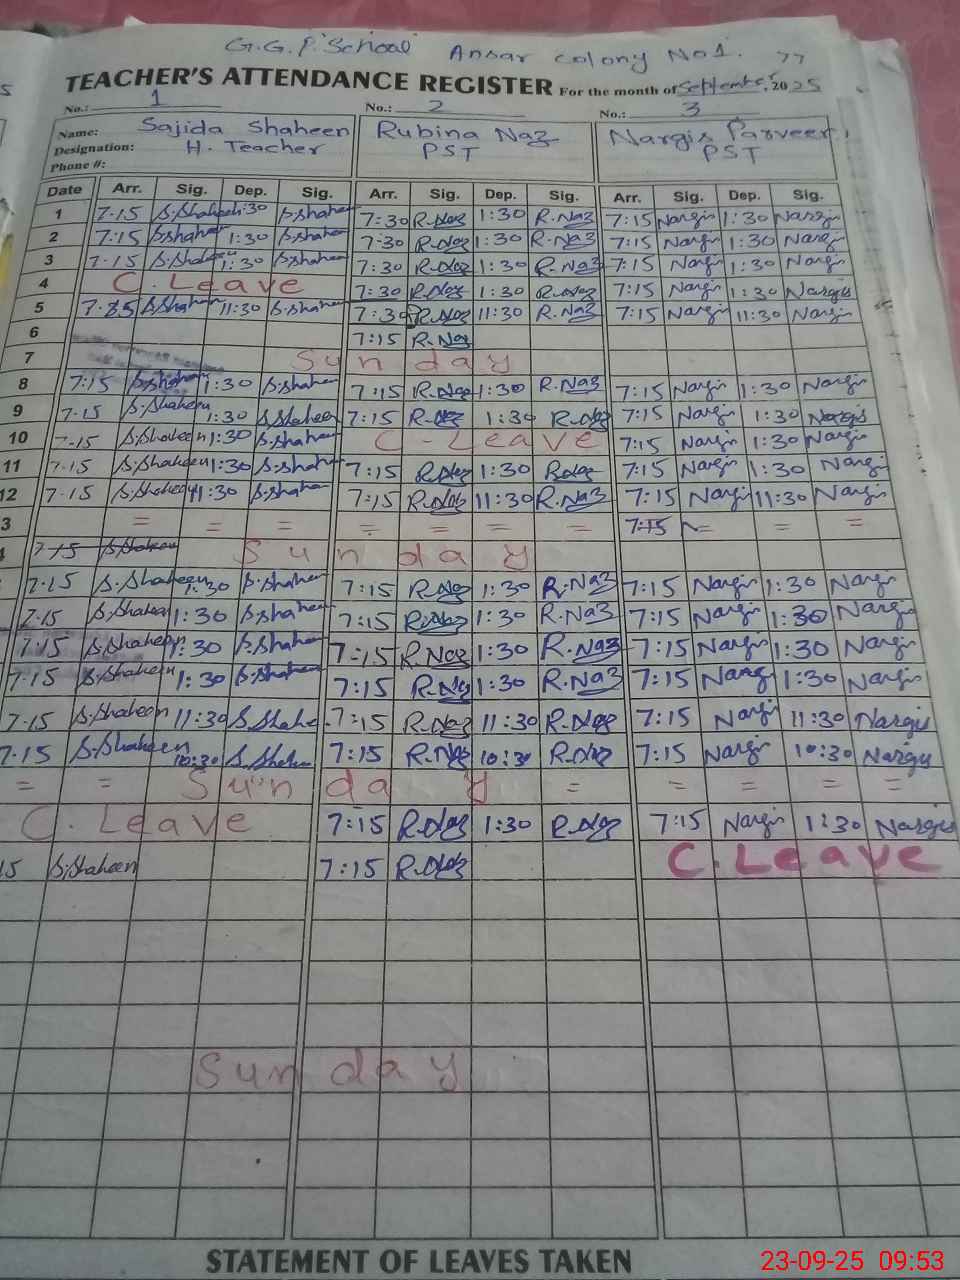 G.G.P. School Ansar colony No 1. 77
TEACHER'S ATTENDANCE REGISTER For the month of September, 2025
No.: 1 No.: 2 No.: 3
Name: Sajida Shaheen Rubina Naz Nargis Parveen
Designation: H. Teacher PST PST
Phone #:
Date Arr. Sig. Dep. Sig. Arr. Sig. Dep. Sig. Arr. Sig. Dep. Sig.
1 7-15 S.Shaheen 1:30 S.shaheen 7:30 R.Naz 1:30 R.Naz 7:15 Nargis 1:30 Nargis
2 7:15 S.shaheen 1:30 S.shaheen 7:30 R.Naz 1:30 R.Naz 7:15 Nargis 1:30 Nargis
3 7-15 S.Shaheen 1:30 S.shaheen 7:30 R.Naz 1:30 R.Naz 7:15 Nargis 1:30 Nargis
4 C. Leave 7:30 R.Naz 1:30 R.Naz 7:15 Nargis 1:30 Nargis
5 S.Shaheen 11:30 S.shaheen 7:30 R.Naz 11:30 R.Naz 7:15 Nargis 11:30 Nargis
6 7:15 R.Naz
7 Sunday
8 7:15 S.Shaheen 1:30 S.shaheen 7:15 R.Naz 1:30 R.Naz 7:15 Nargis 1:30 Nargis
9 7-15 S.Shaheen 1:30 S.Shaheen 7:15 R.Naz 1:30 R.Naz 7:15 Nargis 1:30 Nargis
10 7-15 S.Shaheen 1:30 S.shaheen C - Leave 7:15 Nargis 1:30 Nargis
11 7-15 S.Shaheen 1:30 S.shaheen 7:15 R.Naz 1:30 R.Naz 7:15 Nargis 1:30 Nargis
12 7-15 S.Shaheen 11:30 S.shaheen 7:15 R.Naz 11:30 R.Naz 7:15 Nargis 11:30 Nargis
3 = = = = = = = 7:15 = = =
7-15 S.Shaheen Sunday
7-15 S.Shaheen 1:30 S.Shaheen 7:15 R.Naz 1:30 R.Naz 7:15 Nargis 1:30 Nargis
7-15 S.Shaheen 1:30 S.shaheen 7:15 R.Naz 1:30 R.Naz 7:15 Nargis 1:30 Nargis
7-15 S.Shaheen 1:30 S.Shaheen 7:15 R.Naz 1:30 R.Naz 7:15 Nargis 1:30 Nargis
7-15 S.Shaheen 1:30 S.Shaheen 7:15 R.Naz 1:30 R.Naz 7:15 Nargis 1:30 Nargis
7-15 S.Shaheen 11:30 S.Shahe 7:15 R.Naz 11:30 R.Naz 7:15 Nargis 11:30 Nargis
7-15 S.Shaheen 10:30 S.Shahe 7:15 R.Naz 10:30 R.Naz 7:15 Nargis 10:30 Nargis
= = Sunday = = = = =
C. Leave 7:15 R.Naz 1:30 R.Naz 7:15 Nargis 1:30 Nargis
15 S.Shaheen 7:15 R.Naz C. Leave
Sunday
STATEMENT OF LEAVES TAKEN
23-09-25 09:53